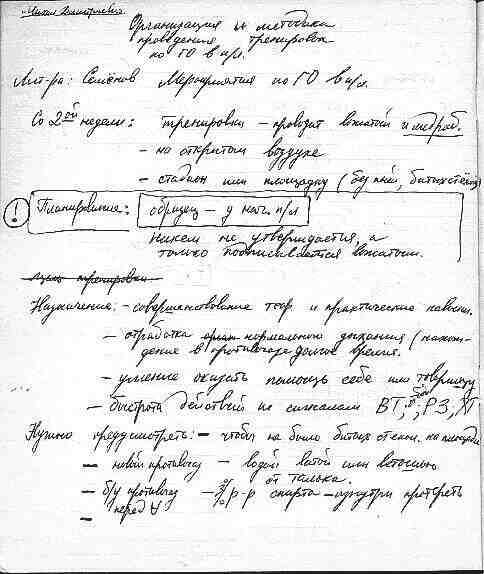 Организация и методика
проведения тренировок
по ГО в п/л.
Лит-ра: Семёнов Мероприятия по ГО в п/л.
Со 2ой недели: тренировки – проводит вожатый и медраб.
– на открытом воздухе
– стадион или площадку (без пней, битых стёкол)
! Планирование: образец – у нач. п/л
никем не утверждается, а
только подписывается вожатым.
цель тренировки
Назначение: – совершенствование теор. и практические навыки.
– отработка нормального дыхания (нахож-
дение в противогазе долгое время.
– умение оказать помощь себе или товарищу
– быстрота действий по сигналам ВТ; ; РЗ, ХТ
Нужно предусмотреть: – чтобы не было битых стекол. на площадке
– новый противогаз – водой ватой или ветошью
от талька.
– б/у противогаз – % р-р спирта – изнутри протереть
перед
–